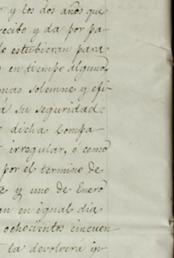 y los dos años que
recibo y da por pa
estubieran para
en tiempo alguno
mas solemne y efi
á su seguridad
dicha Compa
irregular, o como
por el termino de
y uno de Enero
en igual dia
ochocientos cincuen
la devolverá in